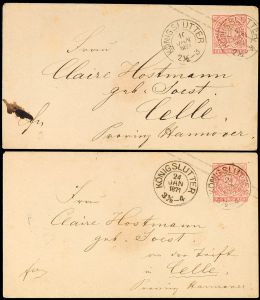 KÖNIGSLUTTER
1871
Frau
Claire Hostmann
geb. Soest
Celle
fr.
Provinz Hannover.
KÖNIGSLUTTER
24
JAN
1871
Frau
Claire Hostmann
geb. Soest
an der Trift
Celle
Provinz Hannover